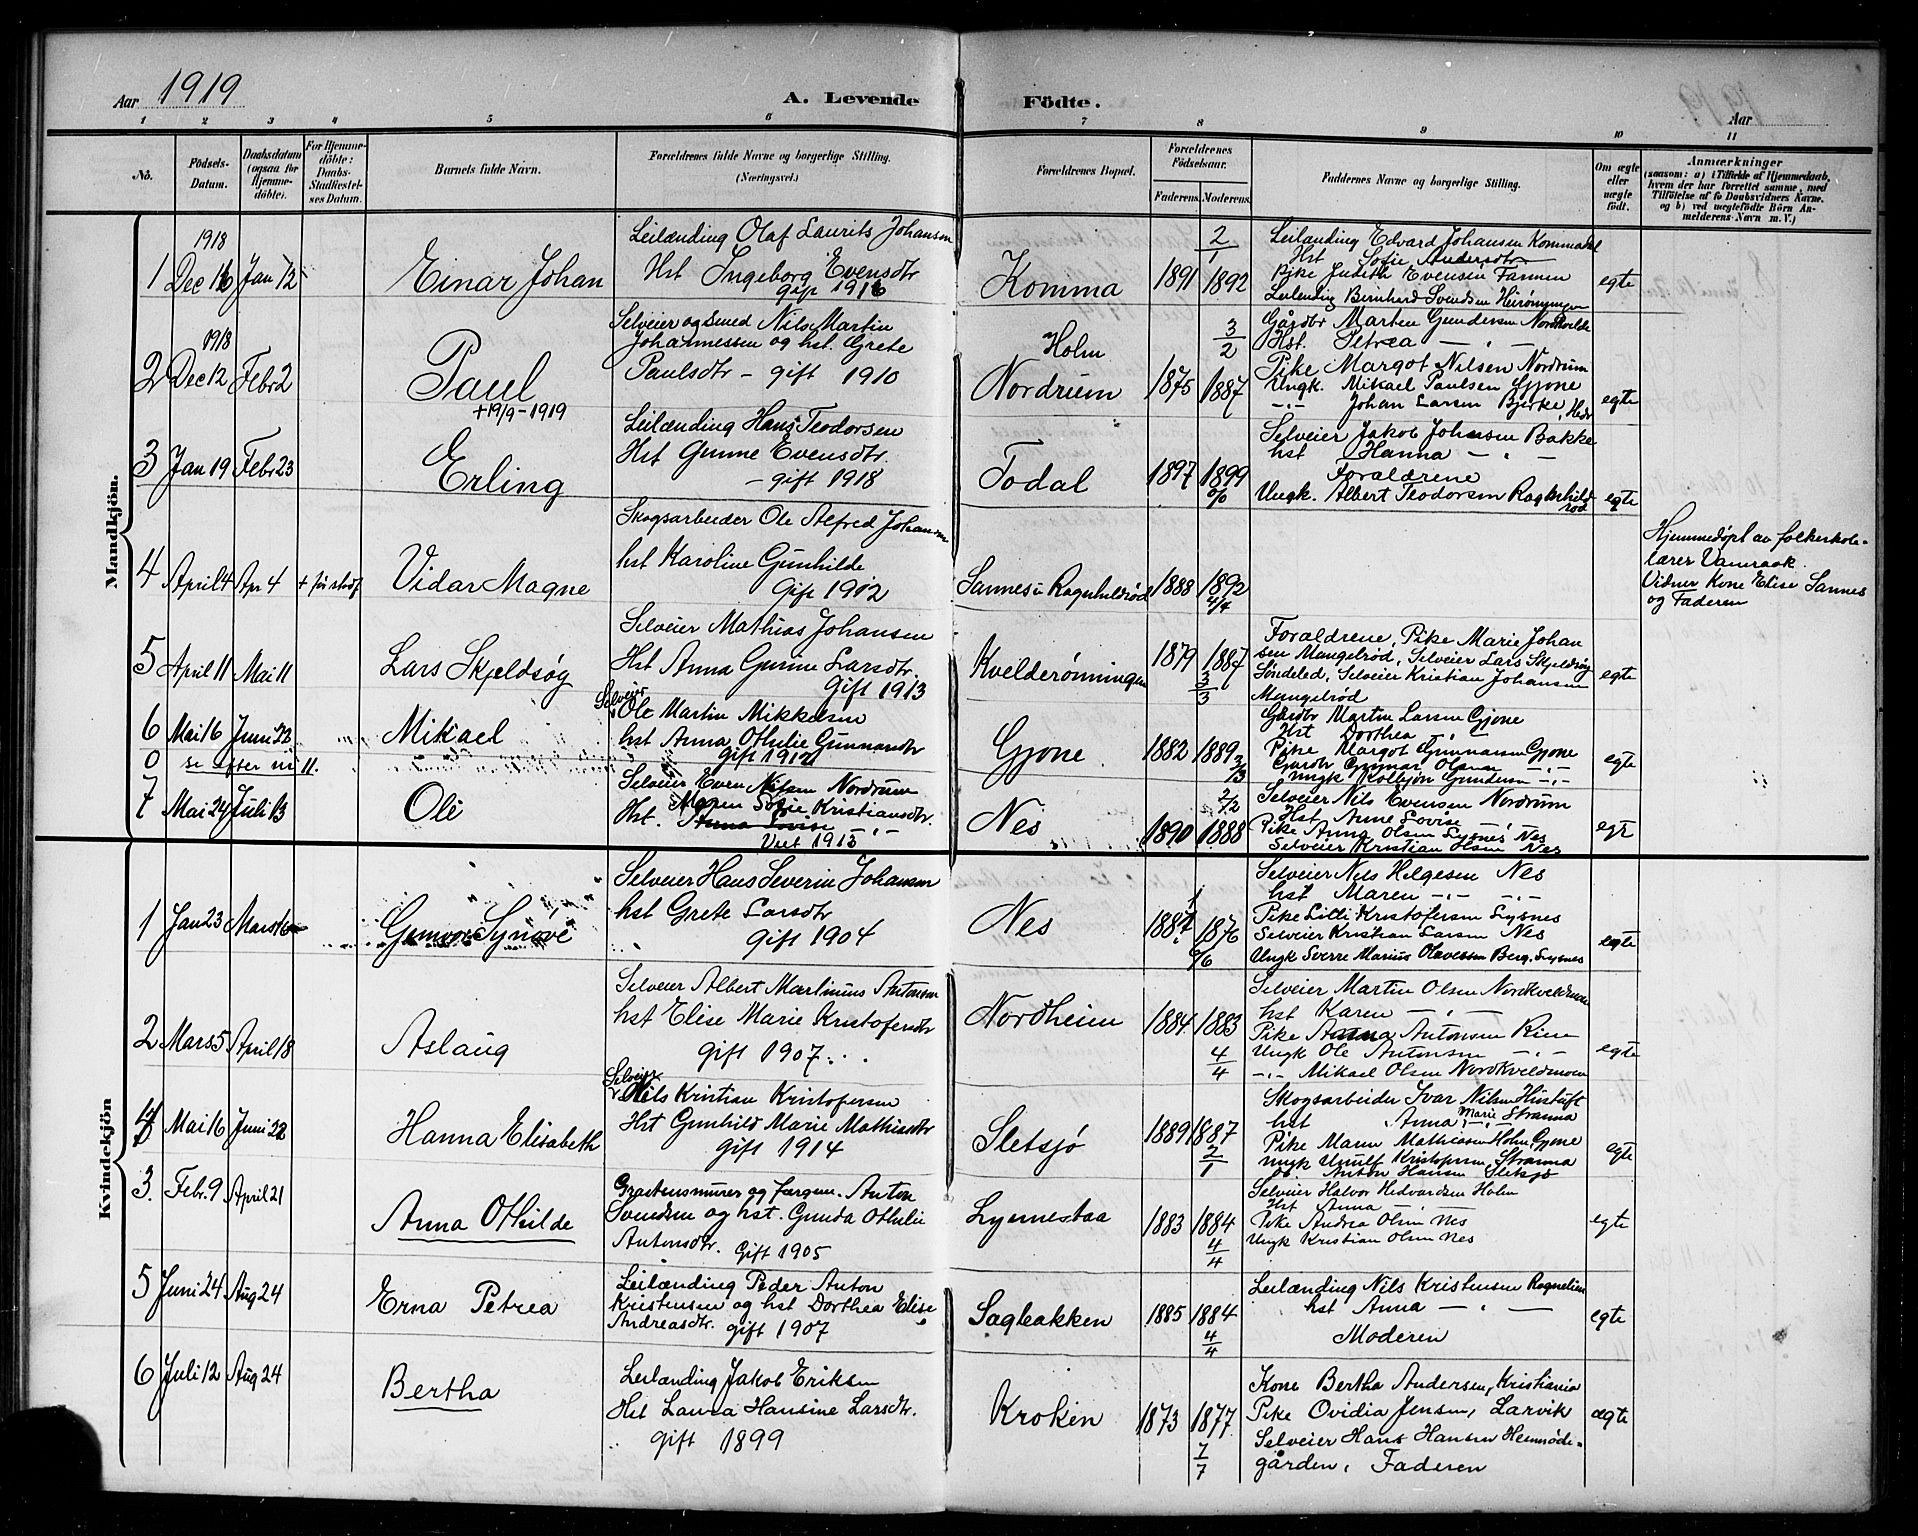 Aar 1919
A. Levende Födte.
Aar
1 2 3 4 5 6 7 8 9 10 11
No.
Födsels-Datum.
Daabsdatum (ogsaa for Hjemme-döbte).
For Hjemme-döbte: Daabs-Stadfæstel-ses Datum.
Barnets fulde Navn.
Forældrenes fulde Navne og borgerlige Stilling. (Næringsvei.)
Forældrenes Bopæl.
Forældrenes Födselsaar.
Faderens. Moderens.
Faddernes Navne og borgerlige Stilling.
Om ægte eller uægte født.
Anmærkninger
(saasom: a) i Tilfælde af Hjemmedaab, hvem der har forrettet samme, med Tilföielse af to Daabsvidners Navne, og b) ved uægtefödte Börn An-melderens Navn m. V.)
Mandkjön.
1 1918 Dec 16 Jan 12 Einar Johan
Leilænding Olaf Laurits Johansen
Hst Ingeborg Evensdtr
gift 1916
Komma 1891 1892 2/1
Leilænding Edvard Johansen Kommedal
Hst Sofie Andersdtr
Pike Judith Evensen Fannen
Leilending Bernhard Svendsen Heirønningen
egte
2 1918 Dec 12 Febr 2 Paul
+19/9-1919
Selveier og Smed Nils Martin
Johannessen og hst. Grete
Paulsdtr - gift 1910
Holm
Nordrum 1875 1887 3/2
Gårdbr Martin Gundersen Nordkvelde
Hst. Petrea - " -
Pike Margot Nilsen Nordrum
Ungk. Mikael Paulsen Gjone
-"- Johan Larsen Bjerke, Hedr
egte
3 Jan 19 Febr 23 Erling
Leilænding Hans Teodorsen
Hst Gunne Evensdtr.
- gift 1918
Todal 1897 1899
Selveier Jakob Johnsen Bakke
hst Hanna - " -
Foraldrene
Ungk. Albert Teodorsen Ragnhild
rød
egte
4 April 4 Apr 4 Vidar Magne
Skogsarbeider Ole Alfred Johansen
hst Karoline Gunhilde
Gift 1912
Sannes u Ragnhildrød 1888 1892
Hjemmedøpt av folkeskole-
lærer Vamraak.
Vidner Kone Elise Sannes
og Faderen
5 April 11 Mai 11 Lars Skjeldsøg
Selveier Mathias Johansen
Hst Anna Gurine Larsdtr
Gift 1913
Kvelderönningen 1879 1887 4/4
Foraldrene, Pike Marie Johan
sen Mangelrød, Selveier Lars Skjeldsøg
Søndeled, Selveier Kristian Johansen
Mangelrød
egte
6 Mai 16 Juni 22 Mikael
Selveier
Ole Martin Mikkelsen
hst Anna Othilie Gunnarsdtr
Gift 1912
Gjone 1882 1889 3/3
Gårdbr Martin Larsen Gjone
Hst Dorthea - " -
Pike Margot Gunnarsen Gjone
Gårdb Gunnar Olsen -"-
Ungk Kolbjørn Gundersen -"-
egte
0 se efter nr 11.
7 Mai 24 Juli 13 Ole
Selveier Even Nilsen Nordrum
Hst. Maren Sofie Kristiansdtr.
Anna Lovise -"-
Viet 1915
Nes 1890 1888 2/2
Selveier Nils Evensen Nordrum
Hst Anne Lovise - " -
Pike Anna Olsen Lysnes Nes
Selveier Kristian Olsen Nes
egte
Kvindekjön
1 Jan 23 Mars 16 Gunvor Synøve
Selveier Hans Severin Johansen
hst Grete Larsdtr
Gift 1904
Nes 1887 1876
Selveier Nils Helgesen Nes
hst Maren -"- -"-
Pike Lilli Kristofersen Lysnes
Selveier Kristian Larsen Nes
Ungk Sverre Marius Olavessen Berg. Lysnes
egte
2 Mars 5 April 18 Aslaug
Selveier Albert Martinius Antonsen
hst Elise Marie Kristofersdtr
gift 1907
Nordheim 1884 1883 6/6
Selveier Martin Olsen Nordkveldmoen
hst Karen - " -
Pike Anna Antonsen Rim
Ungk Ole Antonsen -"-
-"- Mikael Olsen Nordkveldmoen
egte
4 Mai 16 Juni 22 Hanna Elisabeth
Selveier
Nils Kristian Kristofersen
Hst Gunhild Marie Mathiasdtr
gift 1914
Sletsjø 1889 1887 4/4
Skogsarbeider Ivar Nilsen Hintuft
hst Anna Marie Stranna
Pike Maren Mathiasen Holm, Gjone
Ungk Kristofersen Stranna
do. Anton Hansen Sletsjø
egte
3. Febr. 9 April 21 Anna Othilde
Graatensmurer og Jærgem. Anton
Svendsen og hst. Gunda Othilie
Antonsdtr. Gift 1905
Lynnestaa 1883 1884 2/1
Selveier Halvor Hedvardsen Holm
Hst Anna - " -
Pike Andrea Olsen Nes
Ungk Kristian Olsen Nes
egte
5 Juni 24 Aug 24 Erna Petrea
Leilænding Peder Anton
Kristensen og hst Dorthea Elise
Andreasdtr. gift 1907
Sagbakken 1885 1884 4/4
Leilænding Nils Kristensen Ragnelien
hst Anna - " -
Moderen
egte
6 Juli 12 Aug 24 Bertha
Leilænding Jakob Eriksen
Hst Laura Hansine Larsdtr.
gift 1899
Kroken 1873 1877 4/4
7/7
Kone Bertha Andersen, Kristiania
Pike Ovidia Jensen, Larvik
Selveier Hans Hansen Hemnøde-
gården, Faderen
ægte